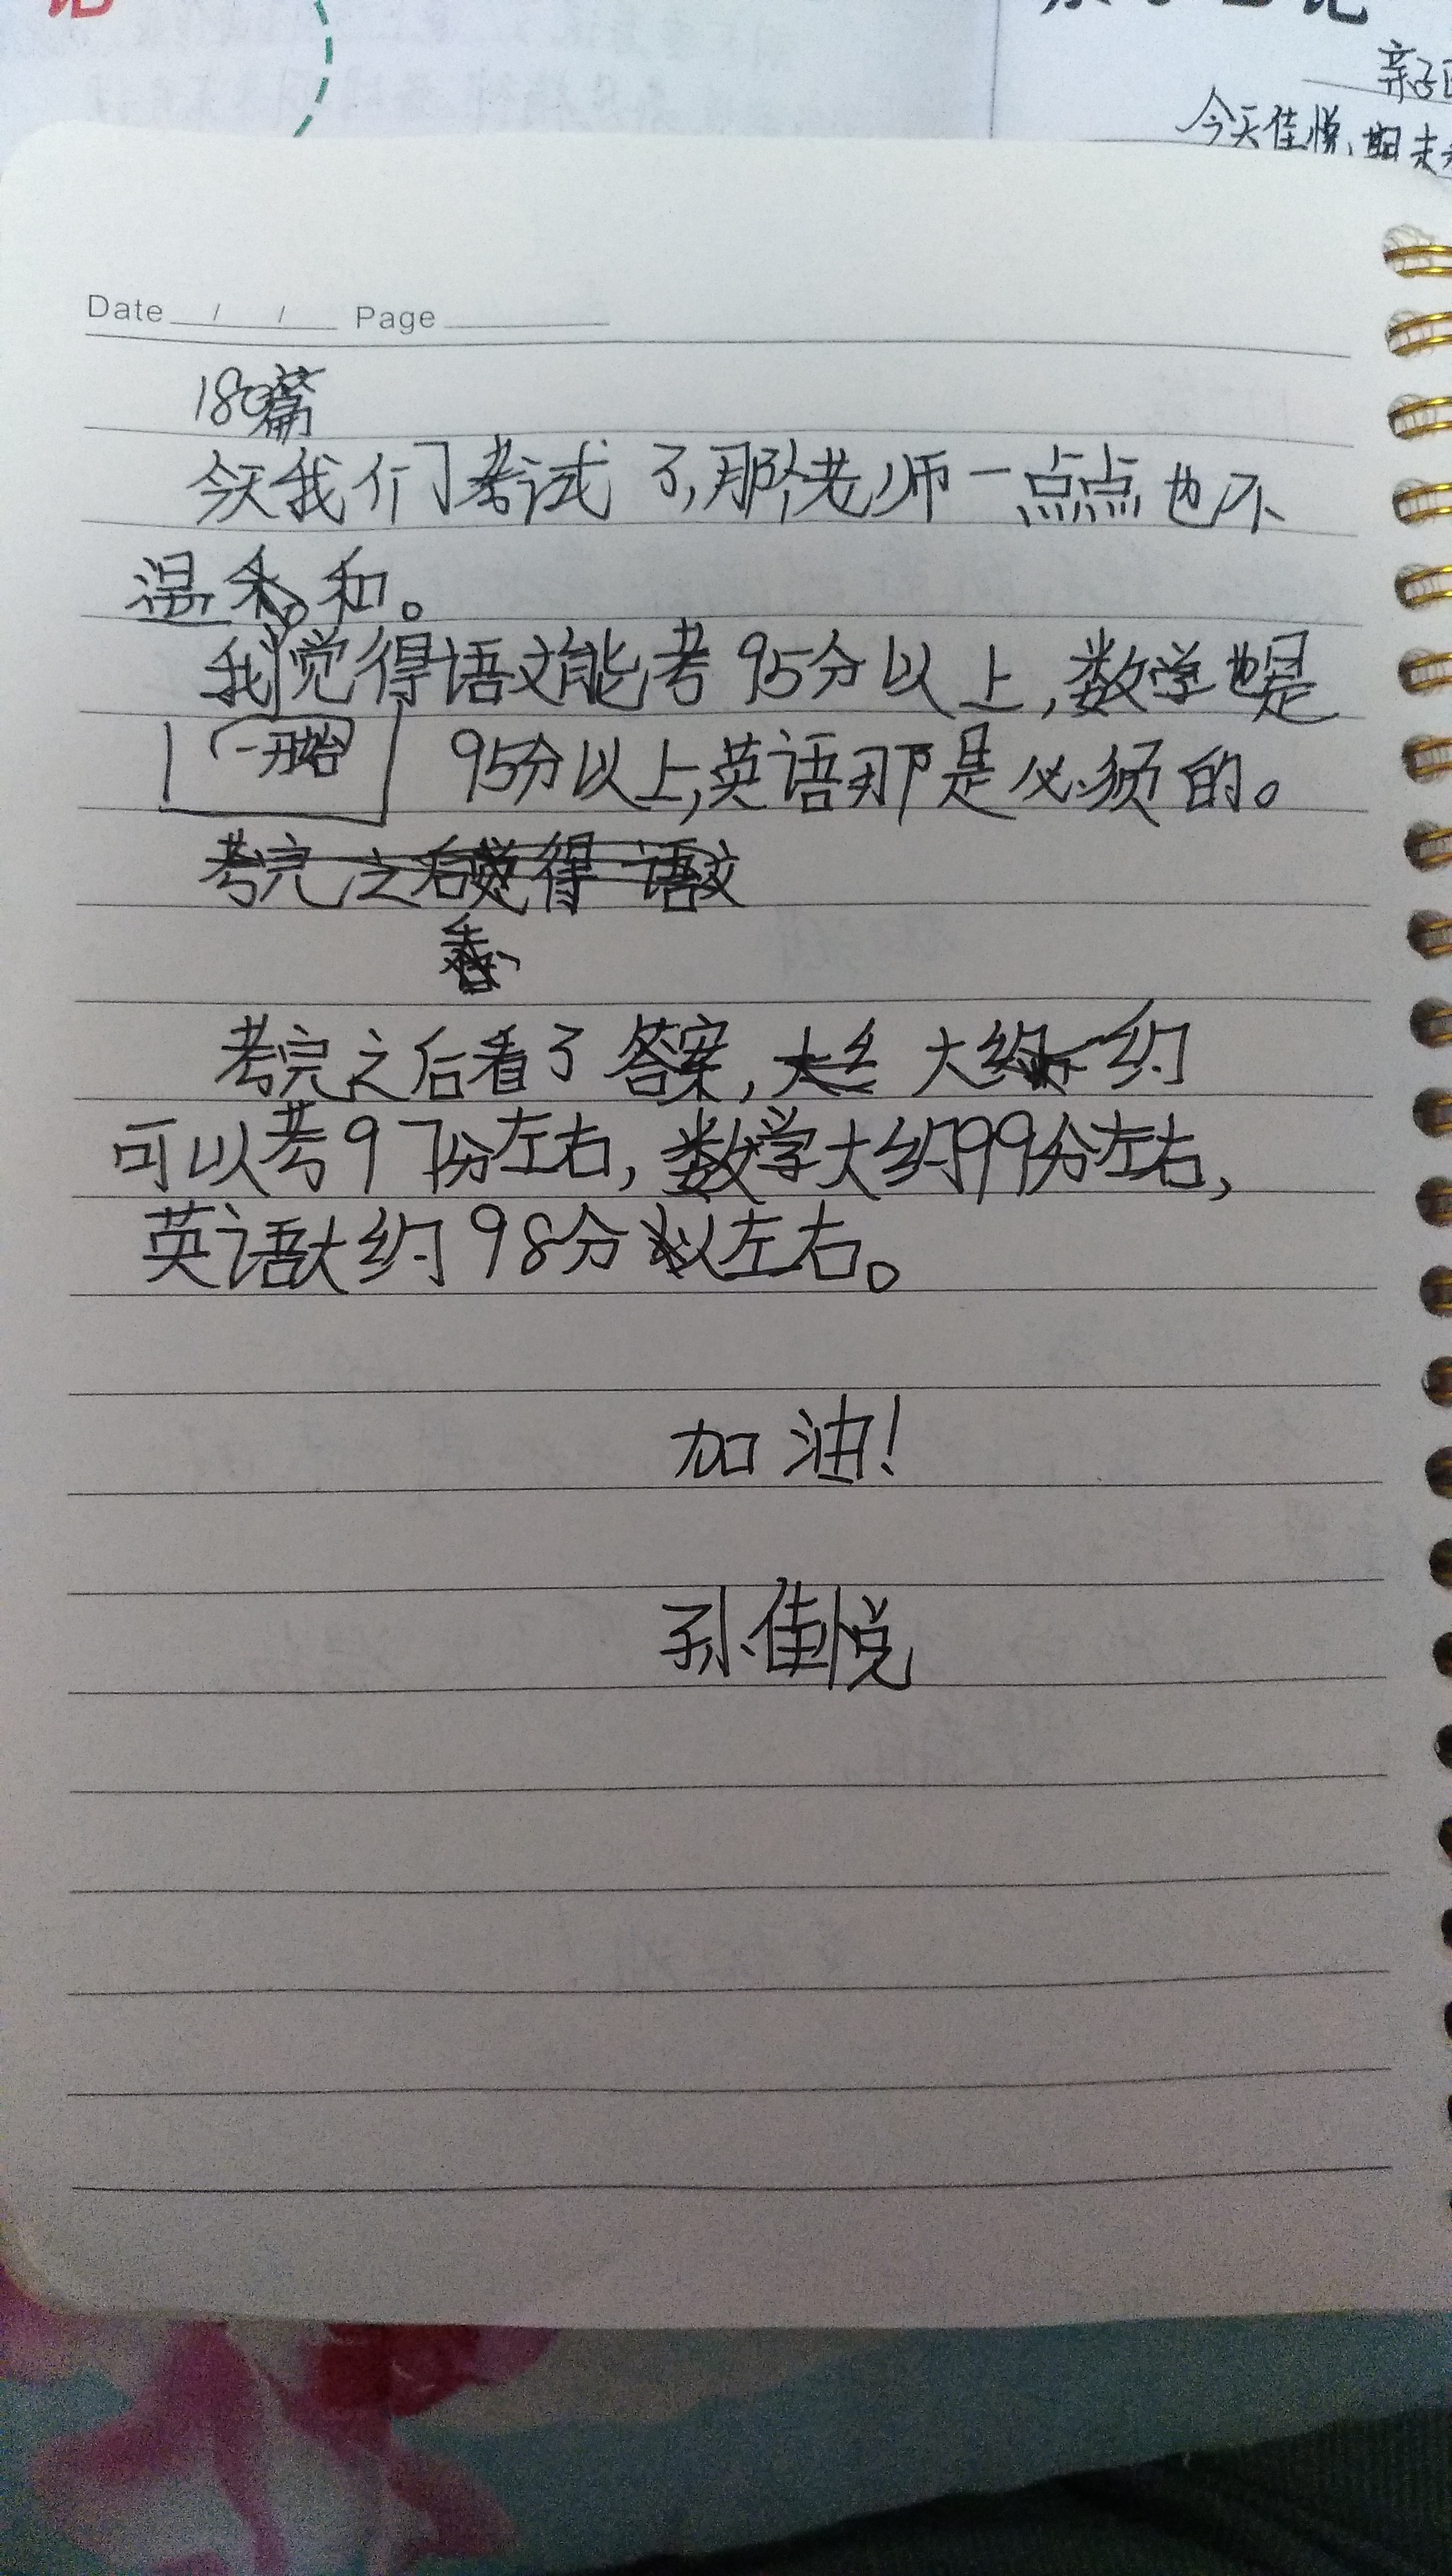 记
亲子日记
亲子日
今天佳悦、期末考
Date / / Page
180篇
今天我们考试了,那个老师一点点也不
温和。
我觉得语文能考95分以上,数学也是
一开始 95分以上,英语那是必须的。
考完之后觉得语文
考完之后看了答案,大约
可以考97分左右,数学大约99分左右,
英语大约98分左右。
加油!
孙佳悦